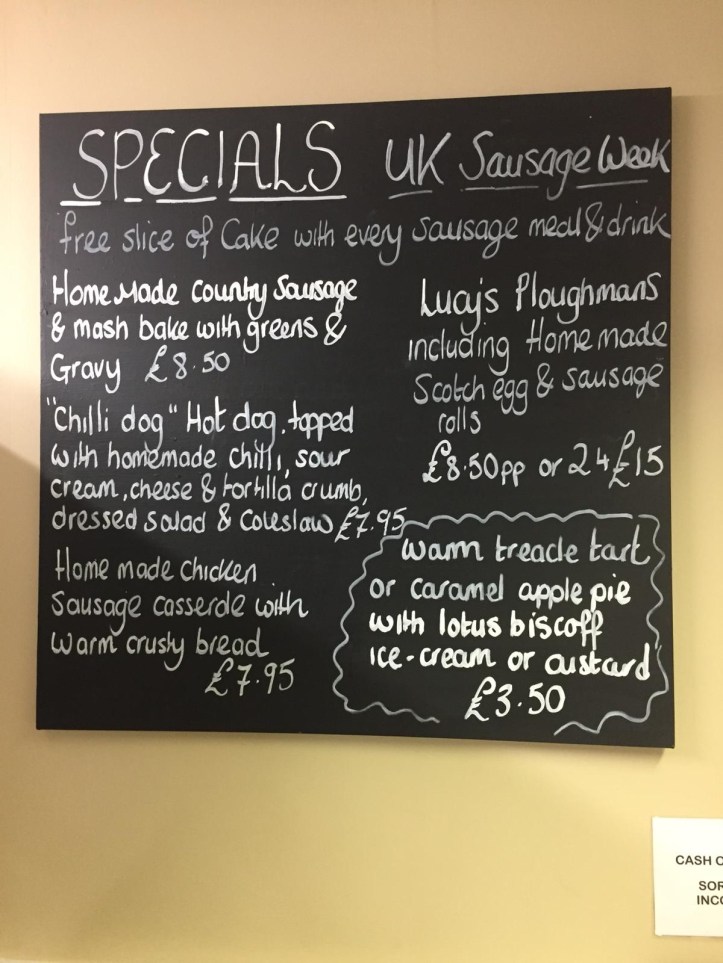 SPECIALS UK Sausage Week
free slice of Cake with every Sausage meal & drink
Home Made Country Sausage
& mash bake with greens &
Gravy £8.50
"Chilli dog" Hot dog, topped
with homemade chilli, sour
cream, cheese & tortilla crumb,
dressed Salad & Coleslaw £7.95
Home made chicken
Sausage casserole with
warm crusty bread
£7.95
Lucy's Ploughmans
including Home made
Scotch egg & sausage
rolls
£8.50pp or 24£15
warm treacle tart
or caramel apple pie
with lotus biscoff
ice-cream or custard
£3.50
CASH O
SOR
INCO